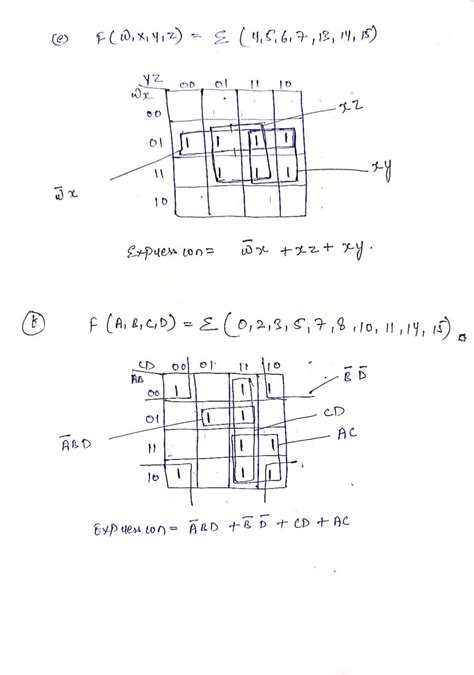 (e) F(w,x,y,z) = Σ (4,5,6,7,13,14,15)
yz 00 01 11 10
wx
xz
00
01 1 1 1 1
11 1 1 1
xy
w̅x
10
Expression = w̅x + xz + xy.
(f) F(A,B,C,D) = Σ (0,2,3,5,7,8,10,11,14,15).
CD 00 01 11 10
AB
B̅ D̅
00 1 1 1
CD
01 1 1
AC
A̅BD
11 1 1
10 1 1 1
Expression = A̅BD + B̅ D̅ + CD + AC